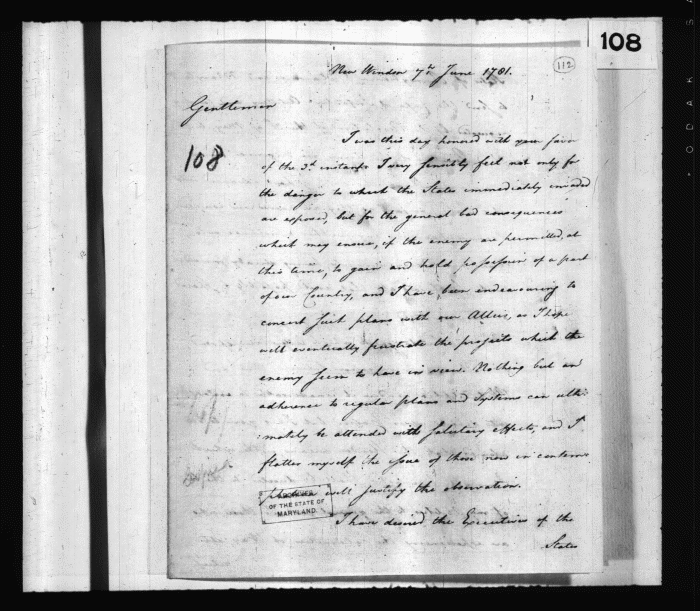 108
112
New Windsor 7th June 1781.
Gentlemen
108
I was this day honored with your favor
of the 3d. instant I very sensibly feel not only for
the danger to which the States immediately invaded
are exposed, but for the general bad consequences
which may ensue, if the enemy are permitted, at
this time, to gain and hold possession of a part
of our Country, and I have been endeavouring to
concert such plans with our Allies, as I hope
will eventually frustrate the projects which the
enemy seem to have in view. Nothing but an
adherence to regular plans and systems can ulti-
:mately be attended with salutary effects, and I
flatter myself the issue of those now in contem-
plation will justify the observation.
ARCHIVES
OF THE STATE OF
MARYLAND
I have desired the Executives of the
States
KODAK